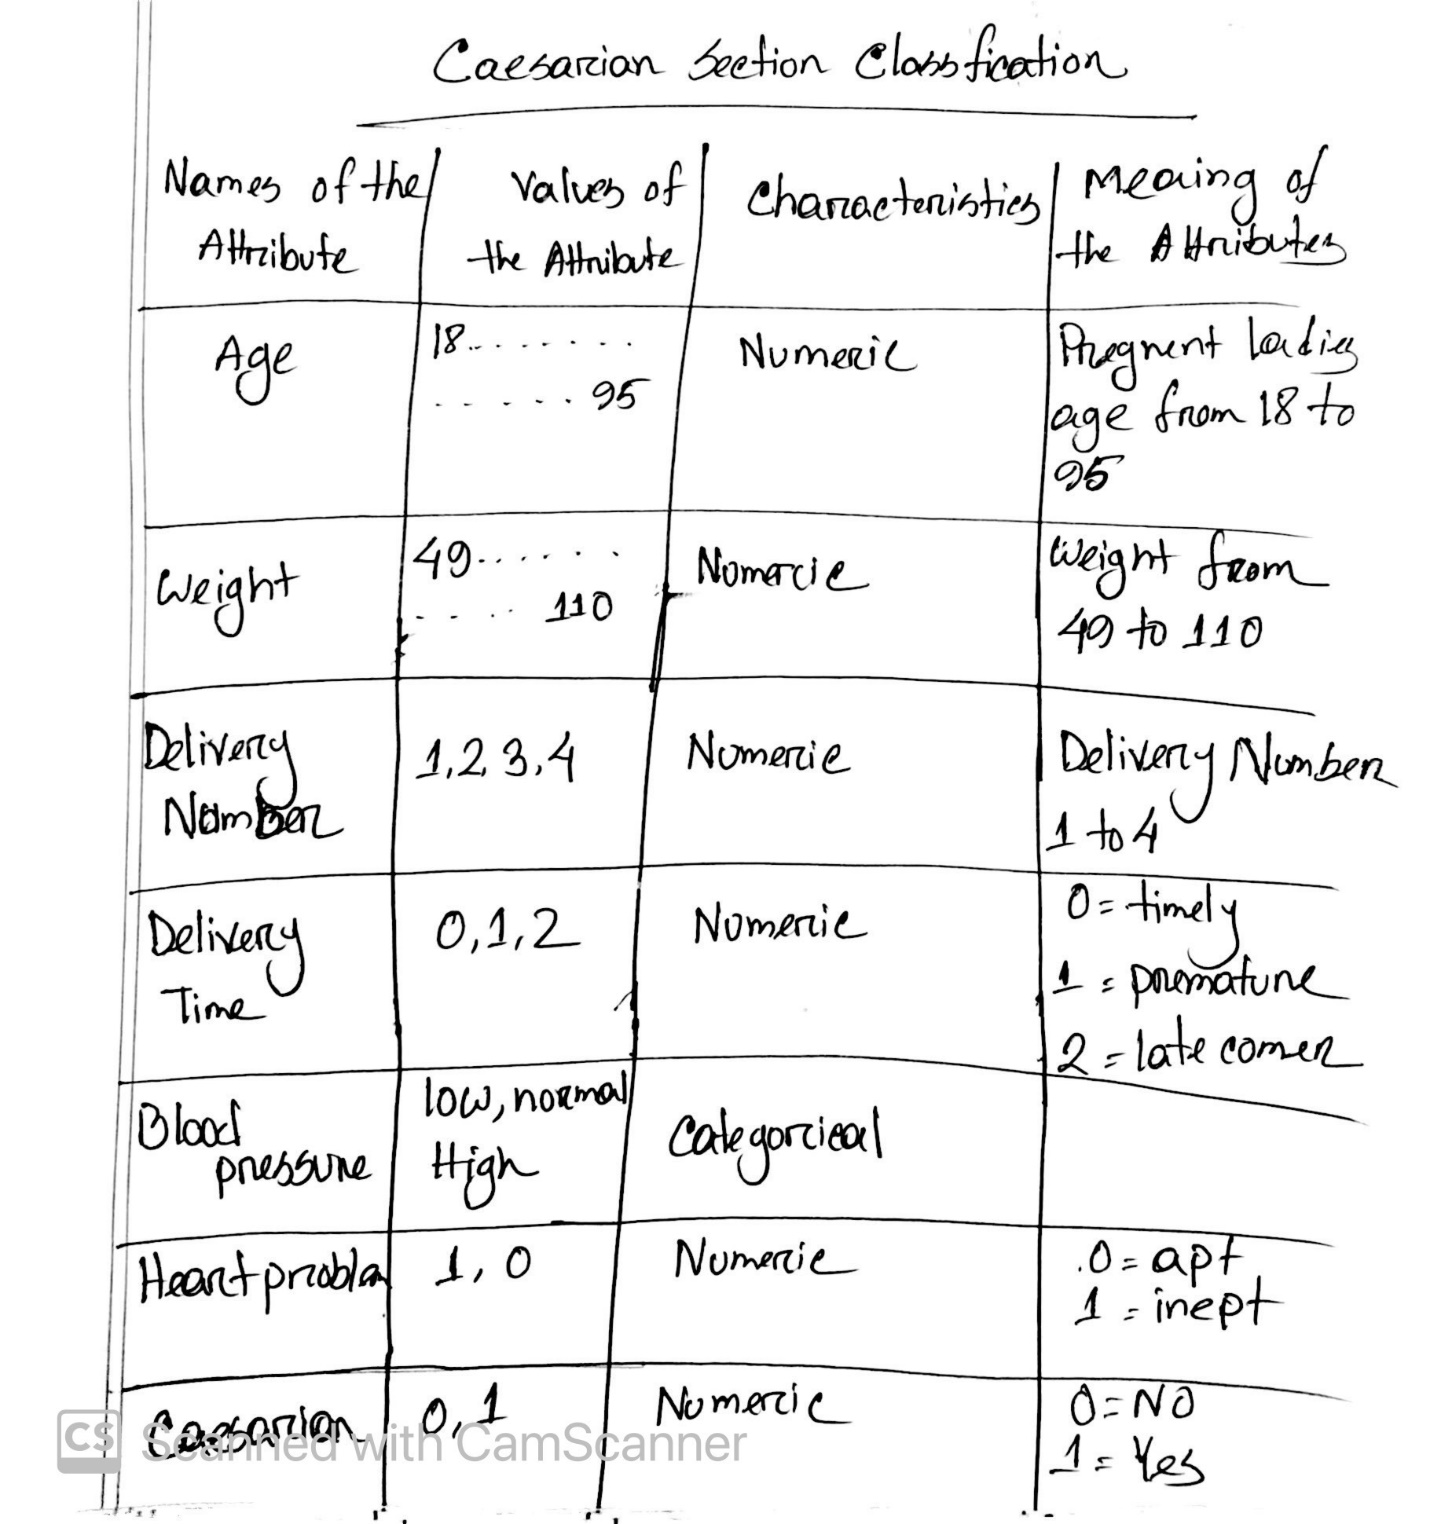 Caesarian Section Classfication
Names of the
Attribute
Values of
the Attribute
Characteristics
Meaing of
the Attributes
Age
18........
...... 95
Numeric
Pregnent ladies
age from 18 to
95
Weight
49......
.... 110
Numeric
Weight from
49 to 110
Delivery
Number
1,2,3,4
Numeric
Delivery Number
1 to 4
Delivery
Time
0,1,2
Numeric
0 = timely
1 = premature
2 = late comer
Blood
pressure
low, normal
High
Categorical
Heart problem
1, 0
Numeric
0 = apt
1 = inept
Caesarian
0, 1
Numeric
0 = NO
1 = Yes
CS Scanned with CamScanner